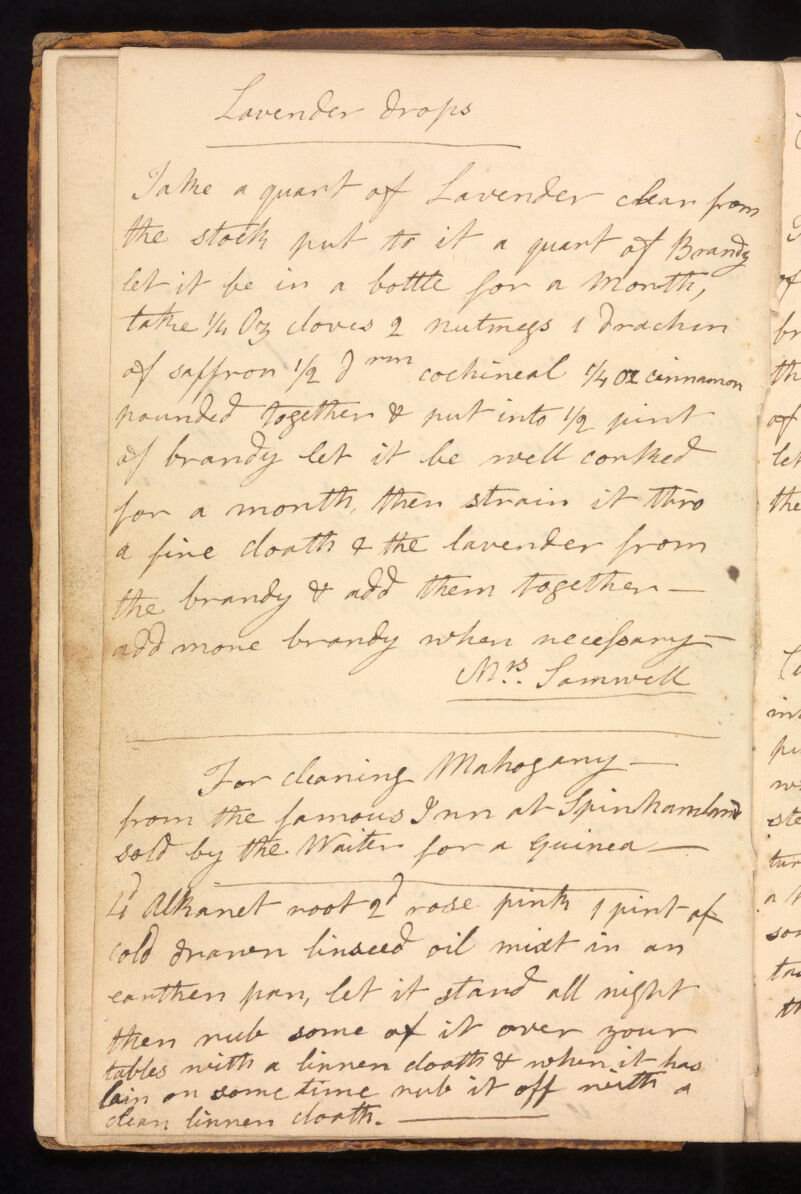 Lavender drops
Take a quart of Lavender clean from
the stock put to it a quart of Brandy
let it be in a bottle for a Month,
take 1/4 Oz cloves 2 nutmegs 1 drachm
of saffron 1/2 drm cochineal 1/4 oz cinnamon
pounded together & put into 1/2 pint
of brandy let it be well corked
for a month, then strain it thro
a fine cloath & the lavender from
the brandy & add them together —
add more brandy when necessary —
Mrs. Samwell
For cleaning Mahogany —
from the famous Inn at Spinhamland
sold by the Waiter for a Guinea —
4d Alkanet root 2d rose pink 1 pint of
cold drawn linseed oil mixt in an
earthen pan, let it stand all night
then rub some of it over your
tables with a linnen cloath & when it has
lain on some time rub it off with a
clean linnen cloath. —